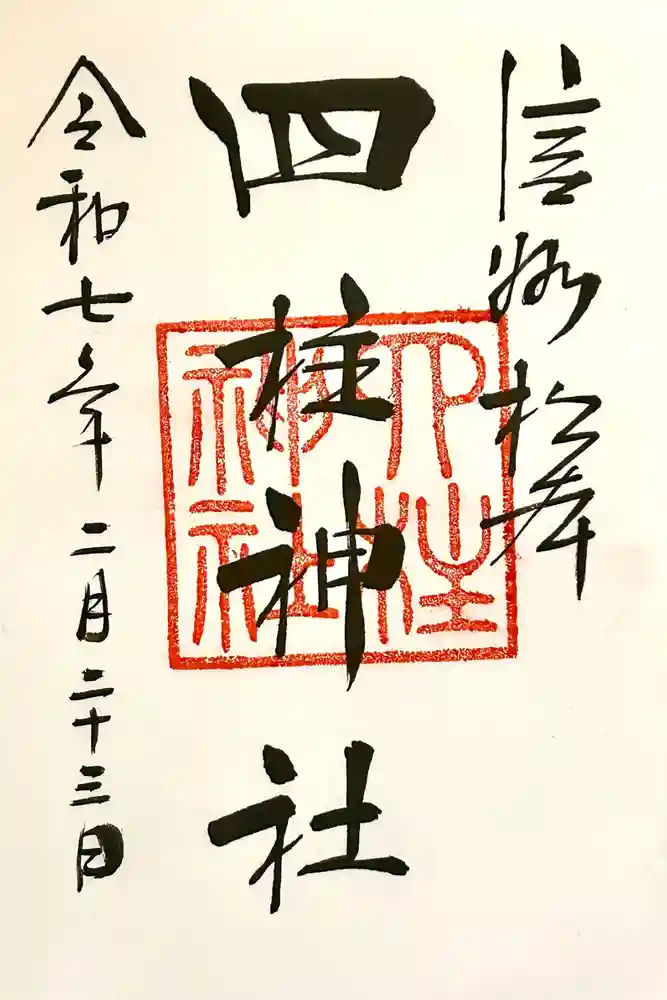 信州松本
四柱神社
四柱神社
令和七年二月二十三日